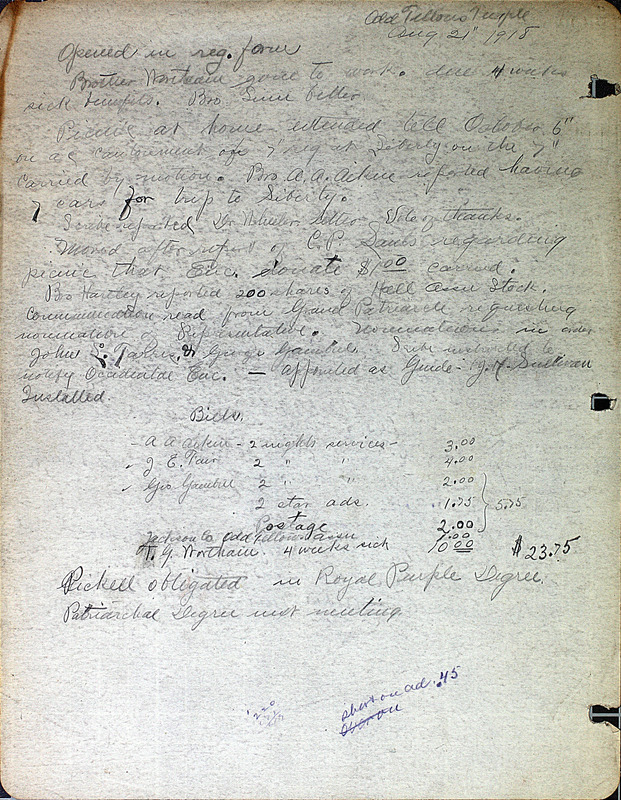 Odd Fellows Temple
Aug 21" 1918
Opened in reg. form
Brother Northam gone to work. due 4 weeks
sick benefits. Bro. better.
Picnic at home extended till October 6"
on ac cantonment of 7 reg at Liberty on the 7"
carried by motion. Bro. A. A. Aitkin reported having
7 cars for trip to Liberty.
Scribe reported Dr Wheeler letter Vote of thanks.
Moved after report of C. P. regarding
picnic that Enc. donate $1.00 carried.
Bro Hartley reported 200 shares of Hall Assn Stock.
Communication read from Grand Patriarch requesting
nomination of Representative. Nominations in order
John & George Gambel. Scribe instructed to
notify Occidental Enc. — appointed as Guide - J. H. Sullivan
Installed.
Bills.
A A Aitkin - 2 nights services - 3.00
J E. Fair 2 " " 4.00
Geo Gambel 2 " " 2.00
2 star ads. 1.75 } 5.75
Postage 2.00
Jackson Co Odd Fellows Assn 1.00
T. G. Northam 4 weeks sick 10.00 $23.75
Pickell obligated in Royal Purple Degree.
Patriarchal Degree next meeting.
ad .45